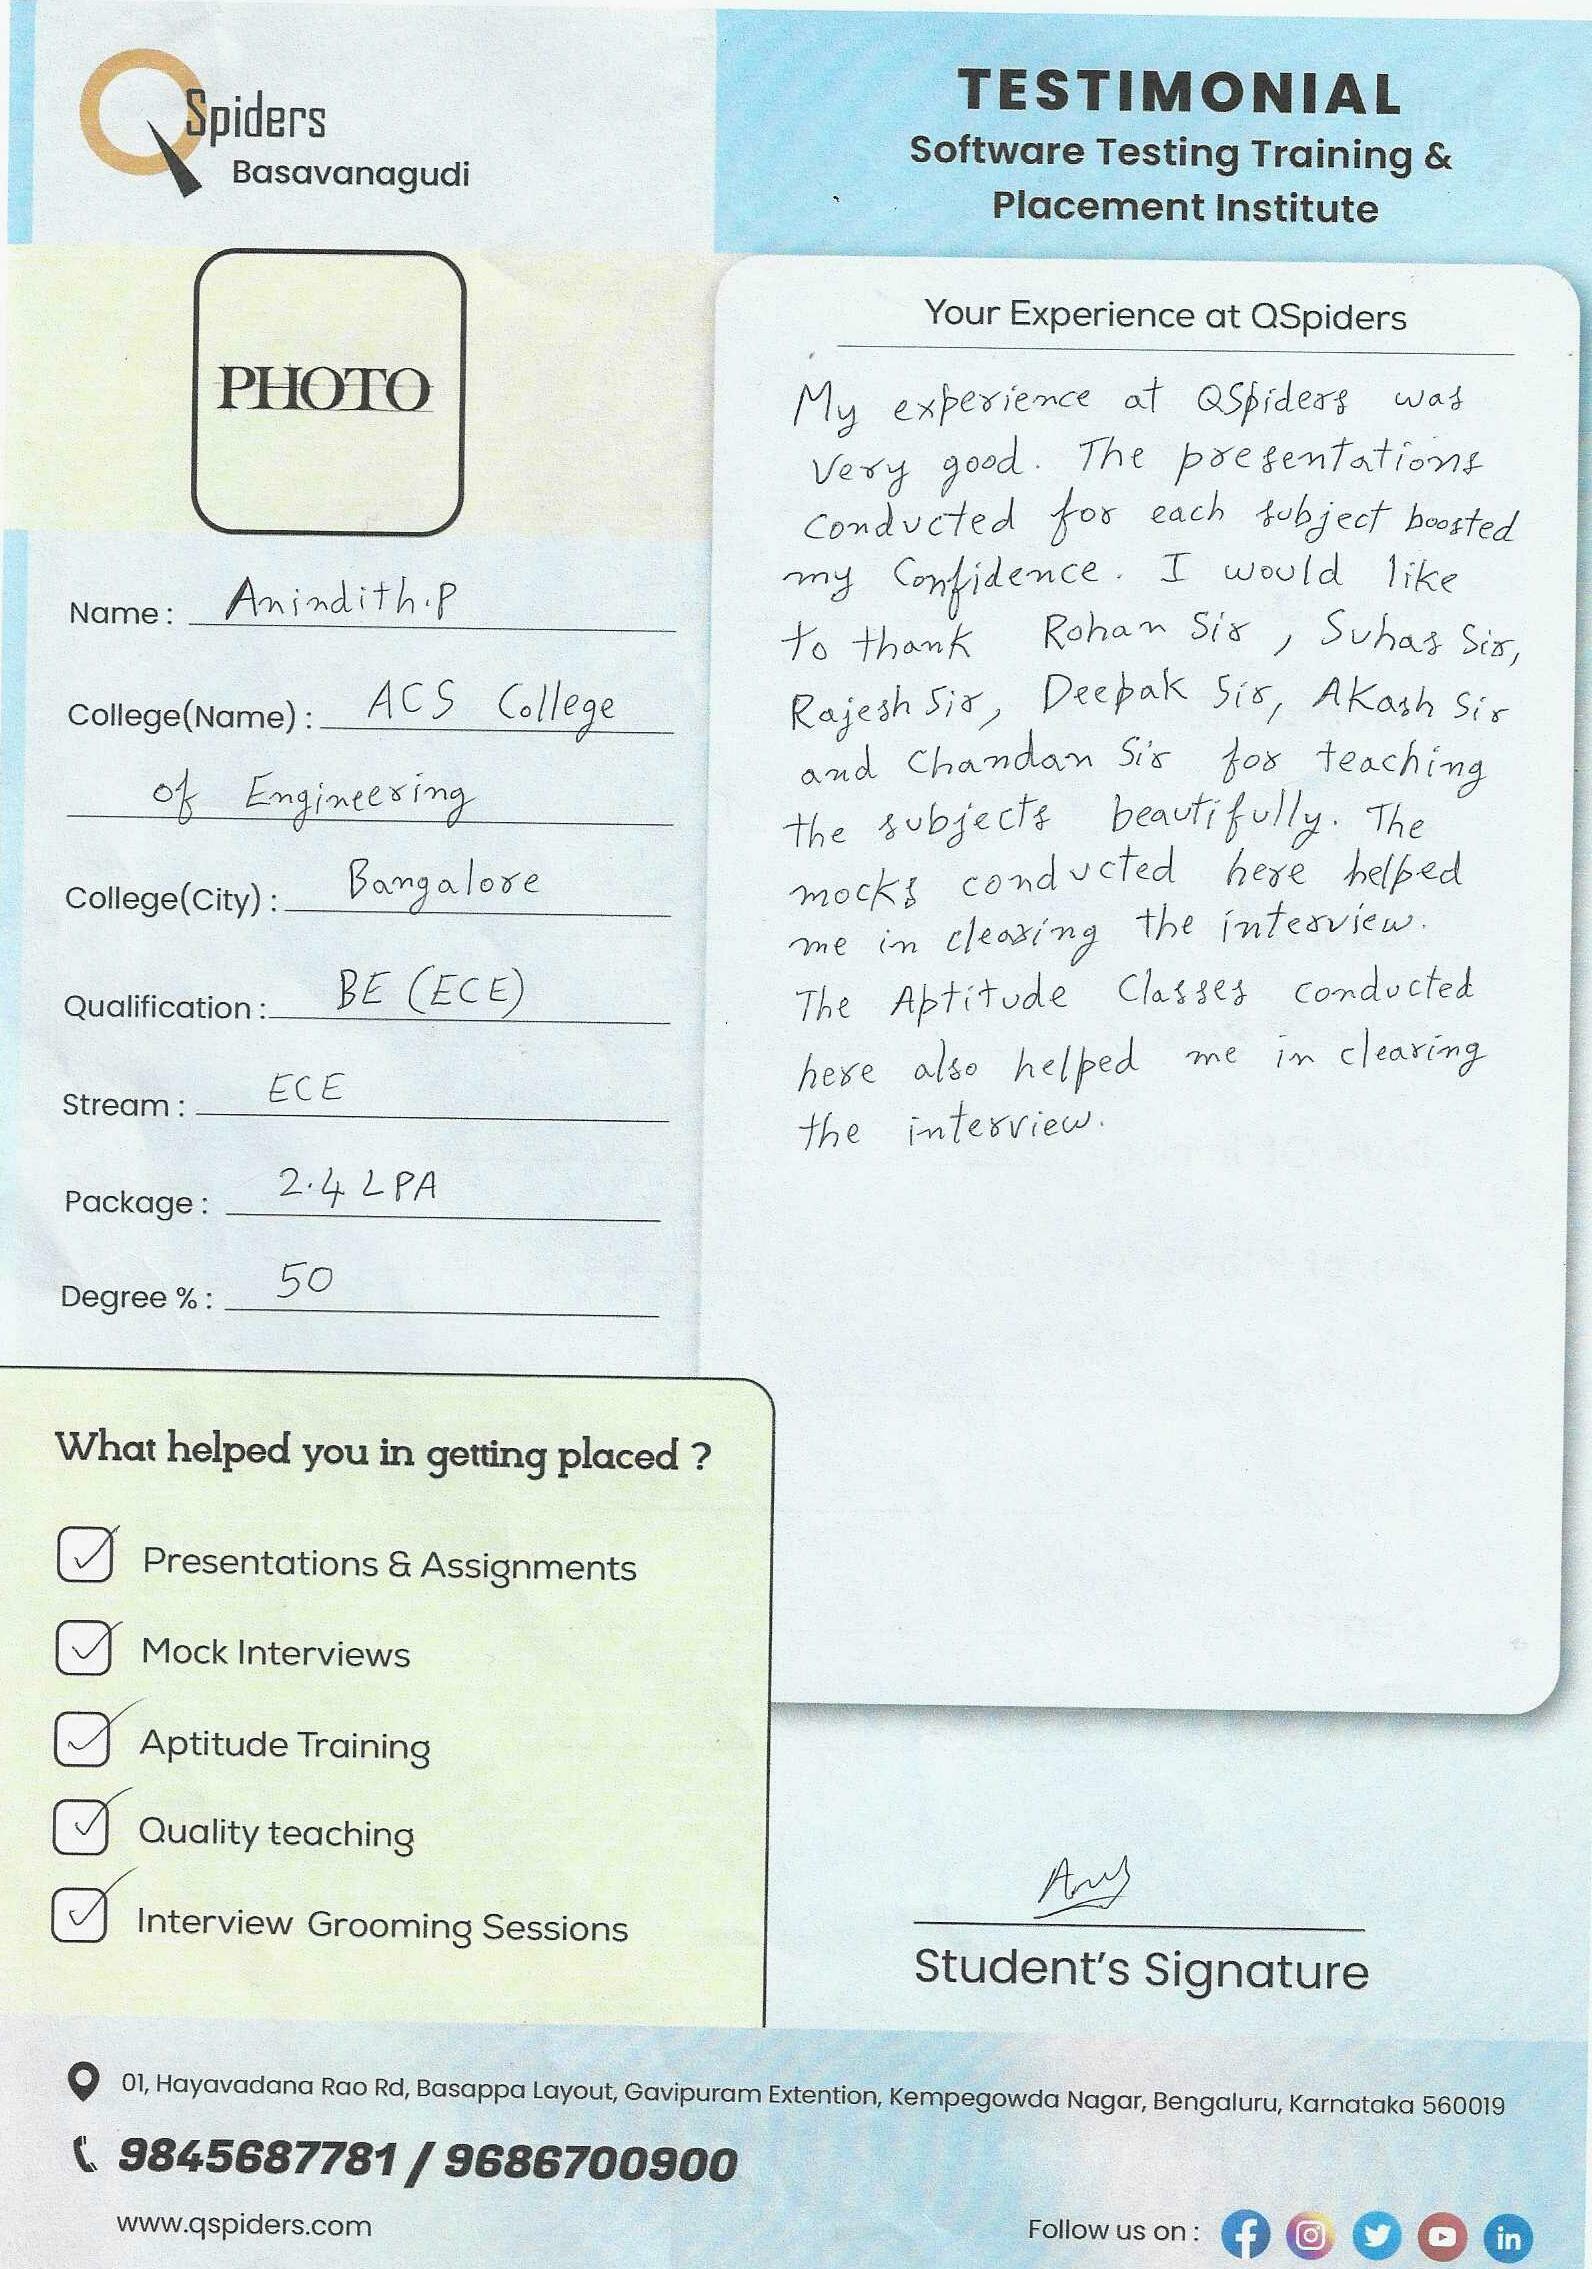 QSpiders
Basavanagudi
TESTIMONIAL
Software Testing Training &
Placement Institute
PHOTO
Name : Anindith.P
College(Name) : ACS College
of Engineering
College(City) : Bangalore
Qualification : BE (ECE)
Stream : ECE
Package : 2.4 LPA
Degree % : 50
Your Experience at QSpiders
My experience at QSpiders was
Very good. The presentations
Conducted for each subject boosted
my Confidence. I would like
to thank Rohan Sir, Suhas Sir,
Rajesh Sir, Deepak Sir, AKash Sir
and Chandan Sir for teaching
the subjects beautifully. The
mocks conducted here helped
me in clearing the interview.
The Aptitude Classes conducted
here also helped me in clearing
the interview.
What helped you in getting placed ?
Presentations & Assignments
Mock Interviews
Aptitude Training
Quality teaching
Interview Grooming Sessions
Student's Signature
01, Hayavadana Rao Rd, Basappa Layout, Gavipuram Extention, Kempegowda Nagar, Bengaluru, Karnataka 560019
9845687781 / 9686700900
www.qspiders.com
Follow us on :